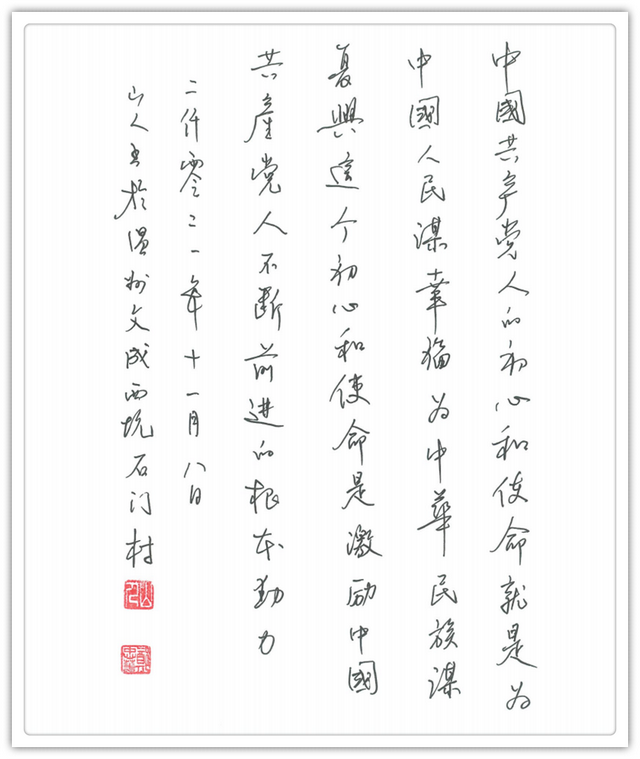 中國共产党人的初心和使命就是为
中國人民谋幸福为中華民族谋
复興這个初心和使命是激励中國
共產党人不断前进的根本動力
二仟零二一年十一月八日
山人書於温州文成西坑石门村